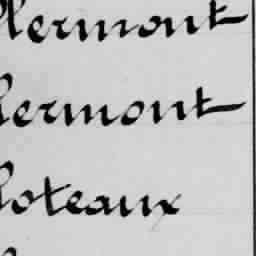 Clermont
Clermont
Coteaux